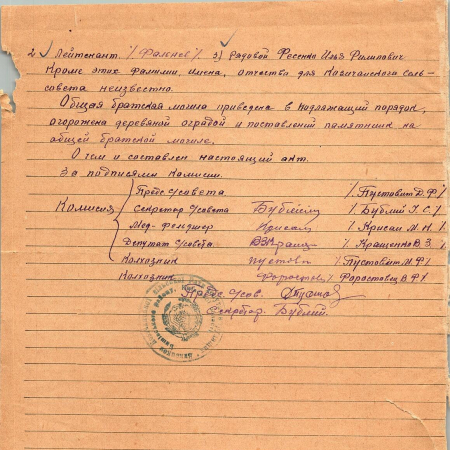 2 Лейтенант /Фалеев/. 3) рядовой Фесенко Илья Филипович
Кроме этих фамилии, имена, отчества для сель-
совета неизвестно.
Общая братская могила приведена в надлжащий порядок,
огорожена деревяной оградой и поставлений памятник на
общей братской могиле.
О чем и составлен настоящий акт.
За подписями Комиссии.
Предс. с/совета /Пустовит Д.Ф/
Комисия Секретар с/совета Бублий /Бублий Г.С./
Мед-фельдшер Крисан /Крисан М.Н./
Депутат с/совета. /Кращенко В.З./
Колхозник Пустови /Пустовит М.Ф/
Колхозник Форостов /Форостовец В.Ф/
Предс. с/сов.
Секретар. Бублий